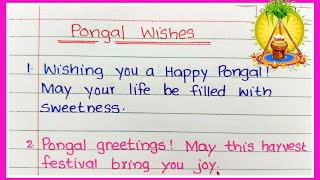 Pongal Wishes
1. Wishing you a Happy Pongal!
May your life be filled with
sweetness.
2. Pongal greetings! May this harvest
festival bring you joy.